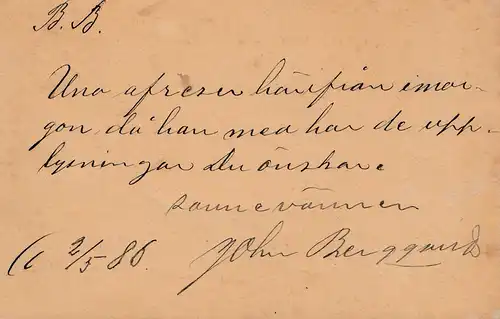 B. B.
Una afreser härifrån imor-
gon då han med har de upp-
lysningar Du önskar.
sannevännen
2/5 86. John Berggquist